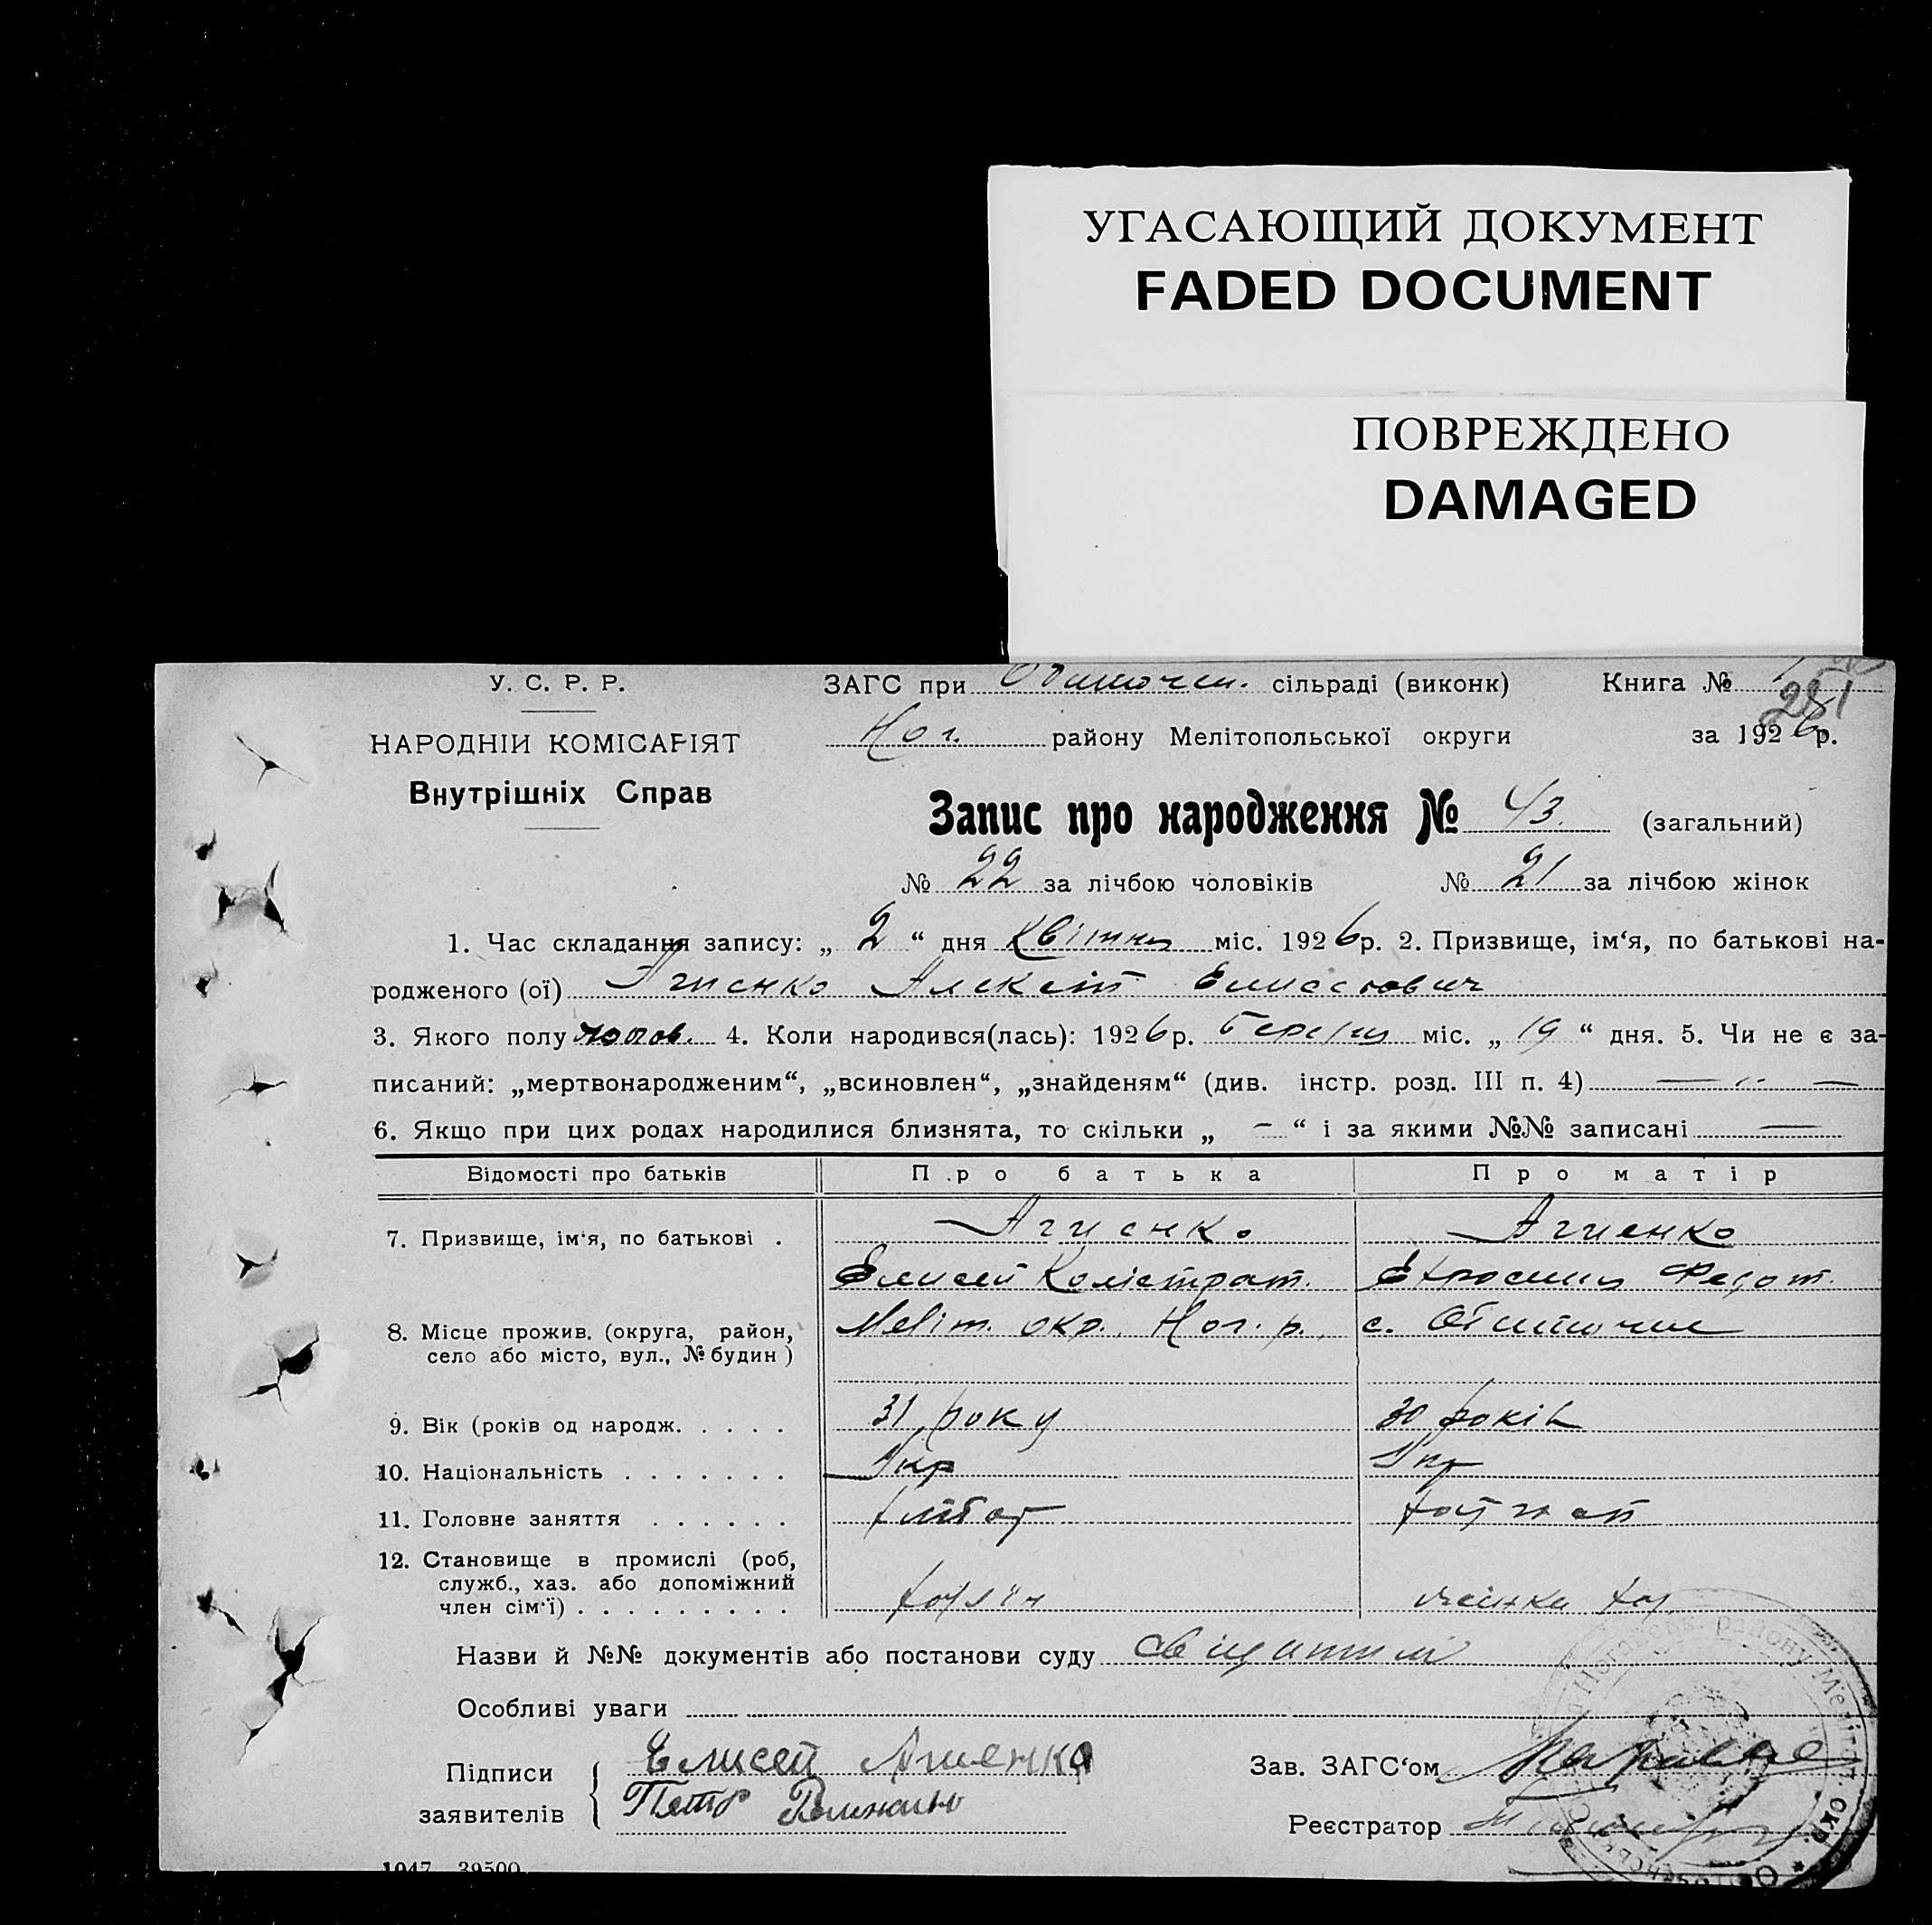 УГАСАЮЩИЙ ДОКУМЕНТ
FADED DOCUMENT
ПОВРЕЖДЕНО
DAMAGED
У. С. Р. Р.
ЗАГС при сільраді (виконк) Книга №
281
НАРОДНІИ КОМІСАРІЯТ
Ног. району Мелітопольської округи за 1926 р.
Внутрішніх Справ
Запис про народження № 43. (загальний)
№ 22 за лічбою чоловіків № 21 за лічбою жінок
1. Час складання запису: „ 2 “ дня Квітня міс. 1926 р. 2. Призвище, ім‘я, по батькові на-
родженого (ої) Агиенко Алексей Елисеевич
3. Якого полу чолов. 4. Коли народився(лась): 1926 р. Березня міс. „ 19 “ дня. 5. Чи не є за-
писаний: „мертвонародженим“, „всиновлен“, „знайденям“ (див. інстр. розд. III п. 4) — „ —
6. Якщо при цих родах народилися близнята, то скільки „ – “ і за якими №№ записані —
Відомості про батьків
Про батька
Про матір
7. Призвище, ім‘я, по батькові .
Агиенко
Агиенко
Елисей Калістрат.
Ефросиния Федот.
8. Місце прожив. (округа, район,
село або місто, вул., № будин )
Меліт. окр. Ног. р.
с. Обиточне
9. Вік (років од народж. . . . .
31 року
30 років
10. Національність . . . . . . .
Укр
Укр
11. Головне заняття . . . . . .
хлібор
12. Становище в промислі (роб,
служб., хаз. або допоміжний
член сім‘ї) . . . . . . . . .
Назви й №№ документів або постанови суду
Особливі уваги
Підписи
заявителів
Елисей Агиенко
Петр
Зав. ЗАГС‘ом
Реєстратор
району Меліт. окр.
1047 39500